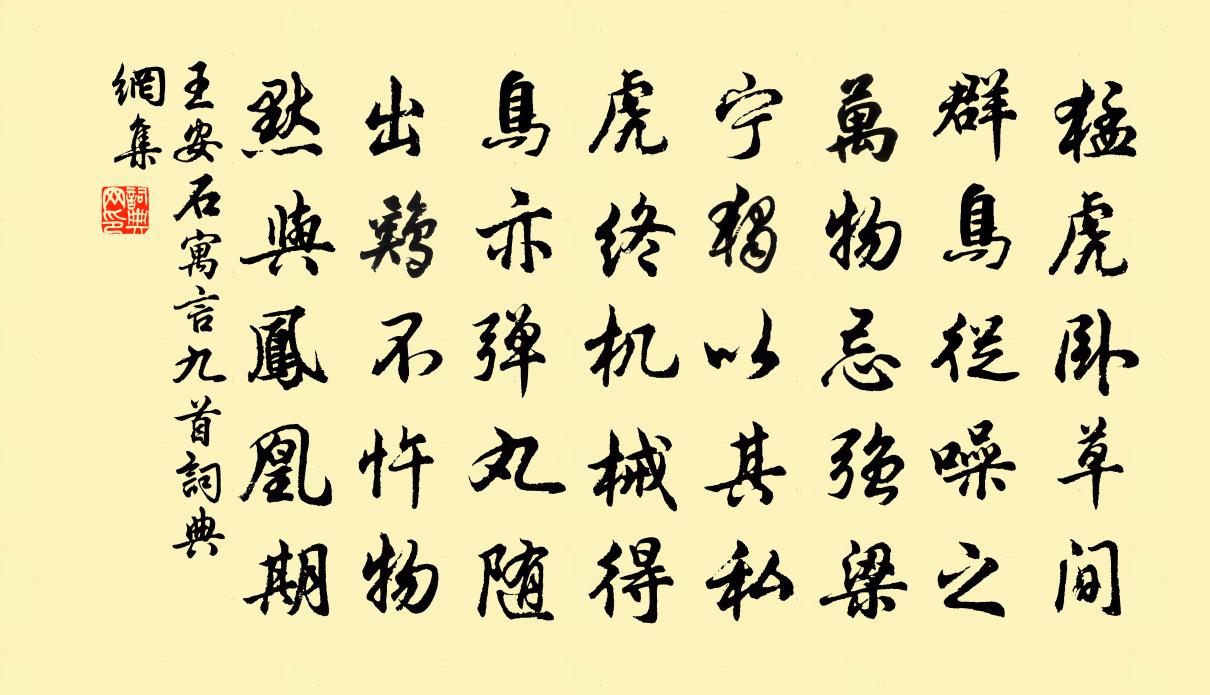 猛虎卧草间
群鳥従噪之
萬物忌強梁
宁獨以其私
虎终机械得
鳥亦弹丸随
出鷄不忤物
默與鳳凰期
王安石寓言九首詞典
網集
詞典
网印